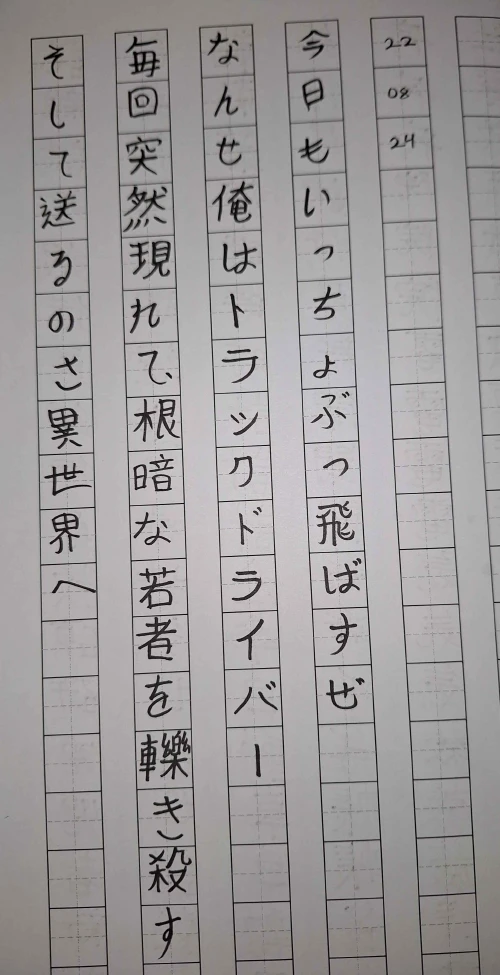 22 08 24
今日もいっちょぶっ飛ばすぜ
なんせ俺はトラックドライバー
毎回突然現れて、根暗な若者を轢き殺す
そして送るのさ異世界へ